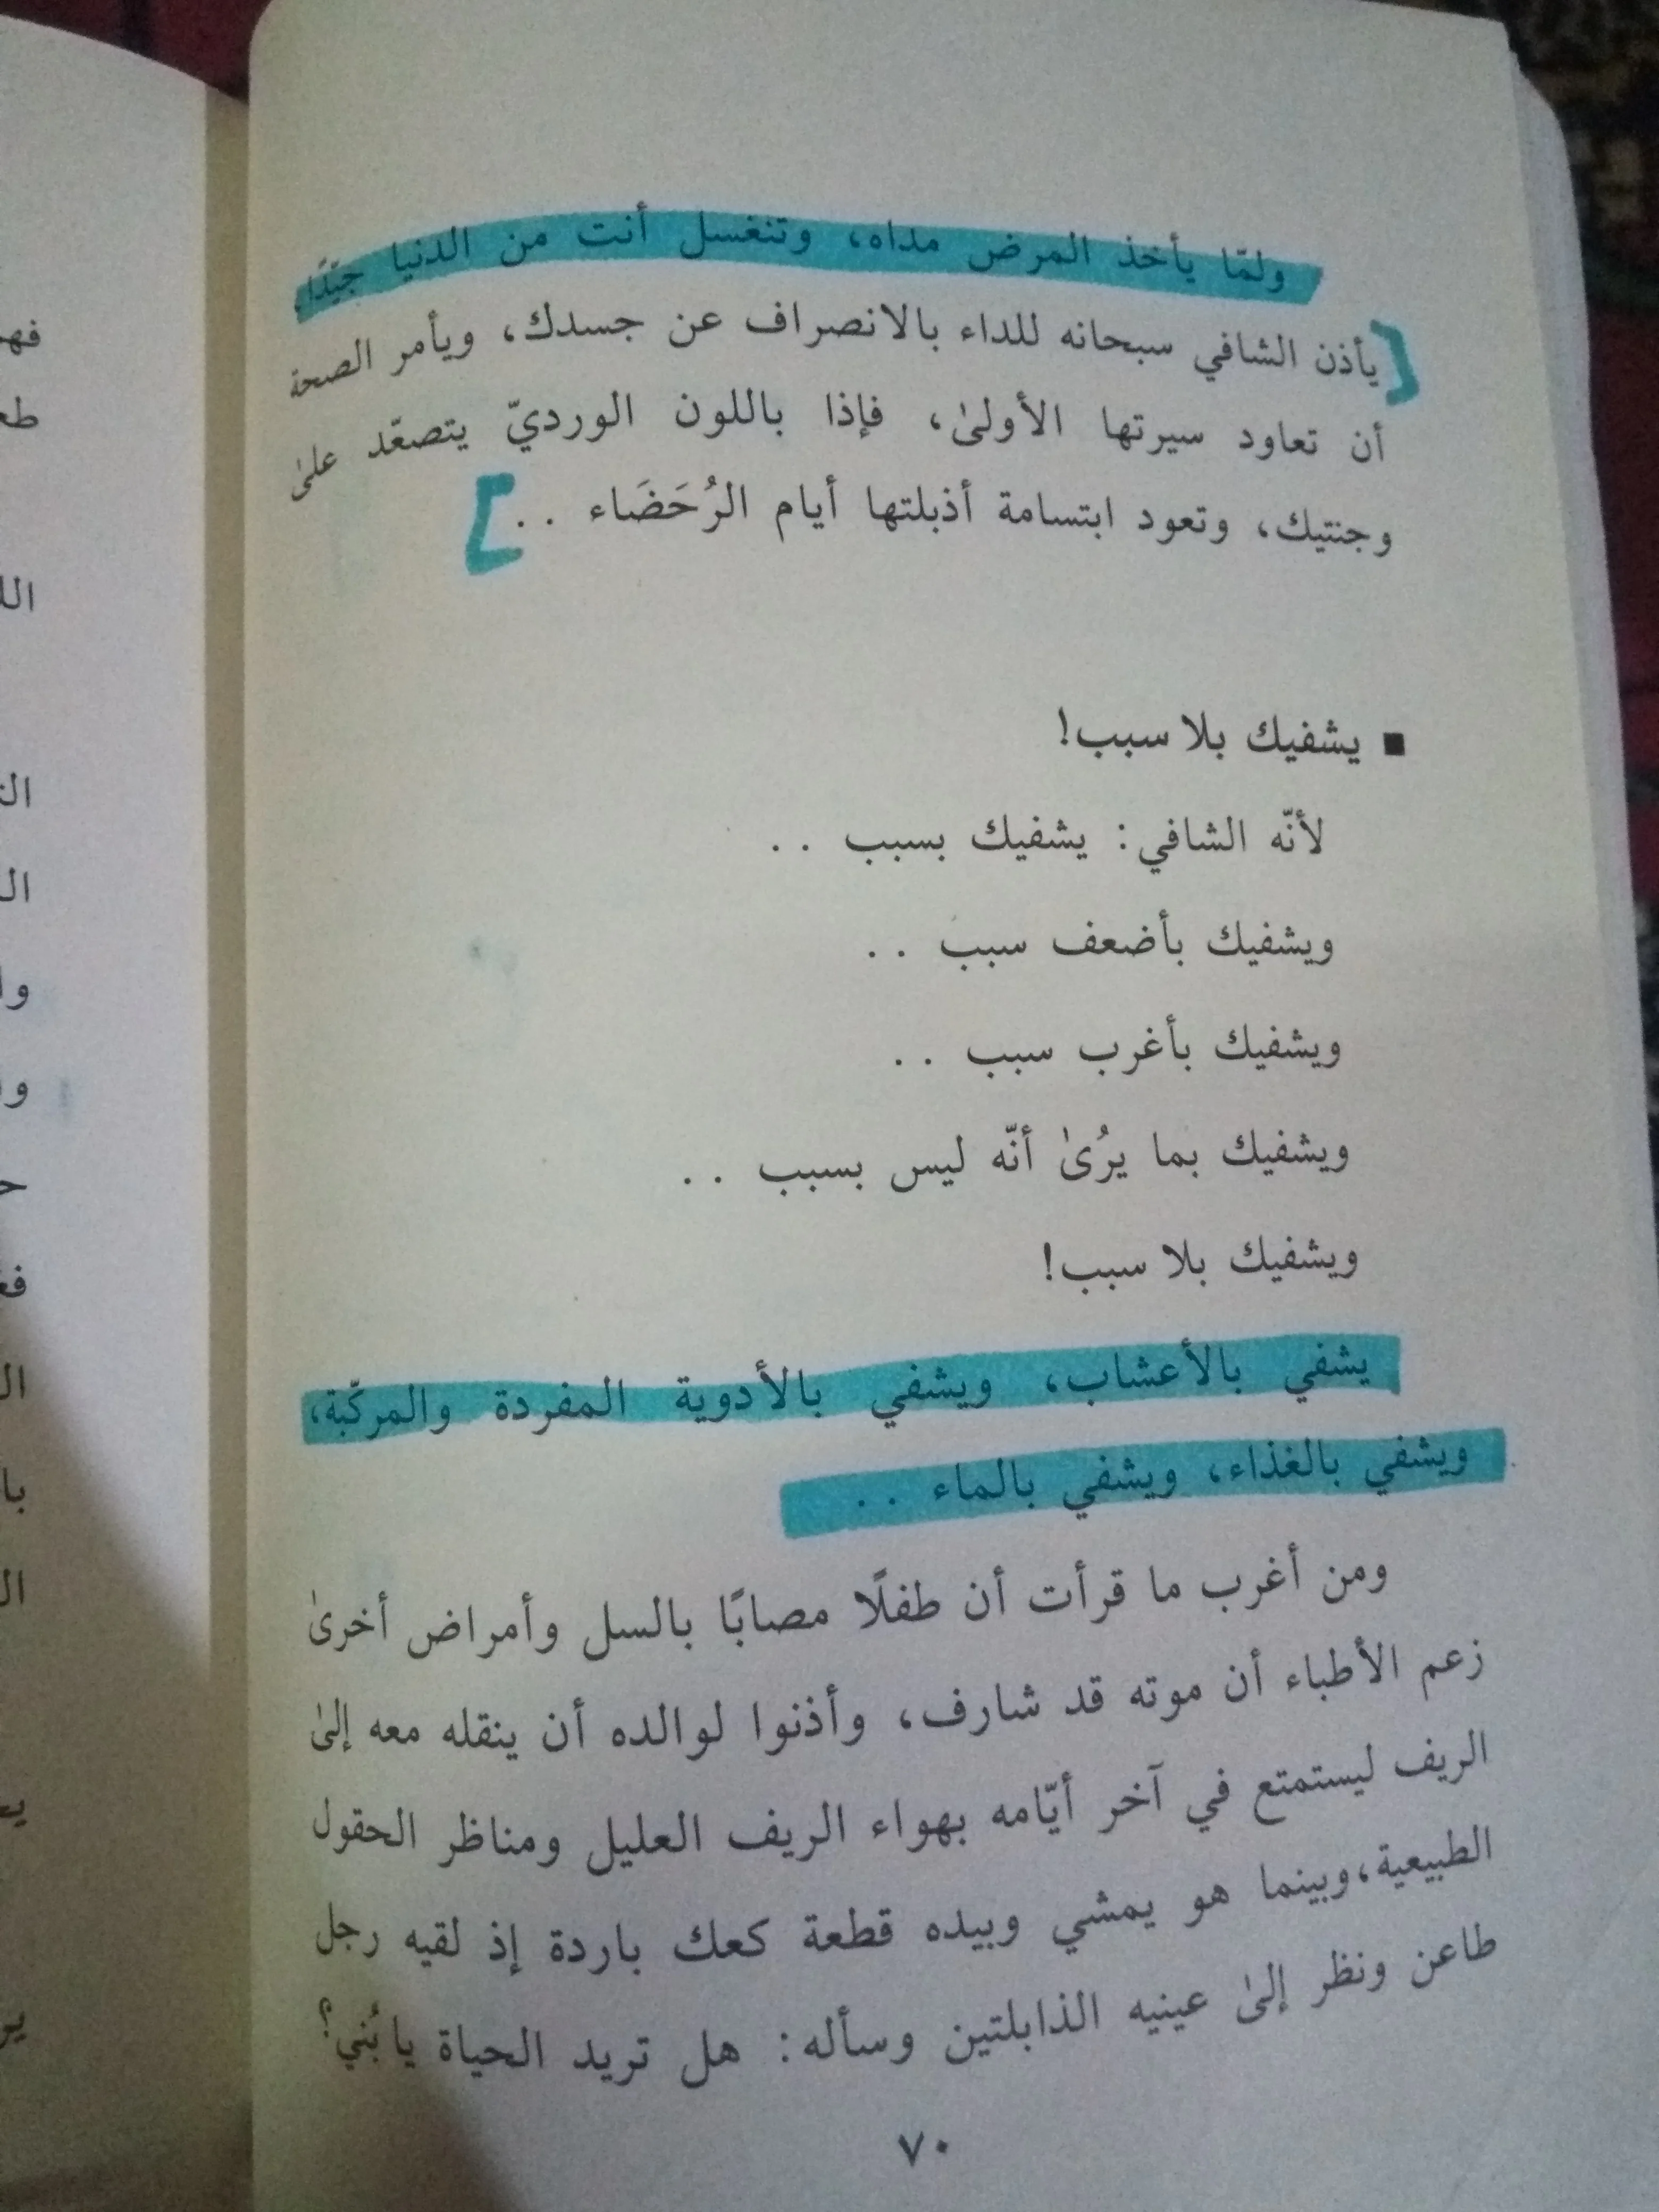 ولمّا يأخذ المرض مداه، وتنغسل أنت من الدنيا جيّدًا،
يأذن الشافي سبحانه للداء بالانصراف عن جسدك، ويأمر الصحة
أن تعاود سيرتها الأولىٰ، فإذا باللون الورديّ يتصعّد علىٰ
وجنتيك، وتعود ابتسامة أذبلتها أيام الرُحَضَاء . .
■ يشفيك بلا سبب!
لأنّه الشافي: يشفيك بسبب . .
ويشفيك بأضعف سبب . .
ويشفيك بأغرب سبب . .
ويشفيك بما يرُىٰ أنّه ليس بسبب . .
ويشفيك بلا سبب!
يشفي بالأعشاب، ويشفي بالأدوية المفردة والمركّبة،
ويشفي بالغذاء، ويشفي بالماء . .
ومن أغرب ما قرأت أن طفلًا مصابًا بالسل وأمراض أخرىٰ
زعم الأطباء أن موته قد شارف، وأذنوا لوالده أن ينقله معه إلىٰ
الريف ليستمتع في آخر أيّامه بهواء الريف العليل ومناظر الحقول
الطبيعية،وبينما هو يمشي وبيده قطعة كعك باردة إذ لقيه رجل
طاعن ونظر إلىٰ عينيه الذابلتين وسأله: هل تريد الحياة يا بُني؟
٧٠